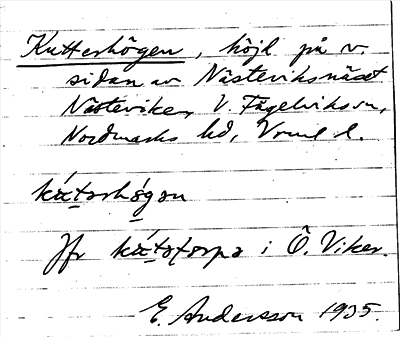 Kutterhögen, höjd på v.
sidan av Nästeviksnäset
Nästeviken, V. Fågelviks sn,
Nordmarks hd, Vrml l.
kátərhögən
Jfr kátətorpə i Ö. Viker.
E. Andersson 1935.